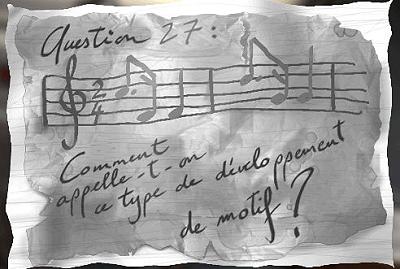 Question 27:
2
4
Comment
appelle-t-on
ce type de développement
de motif?